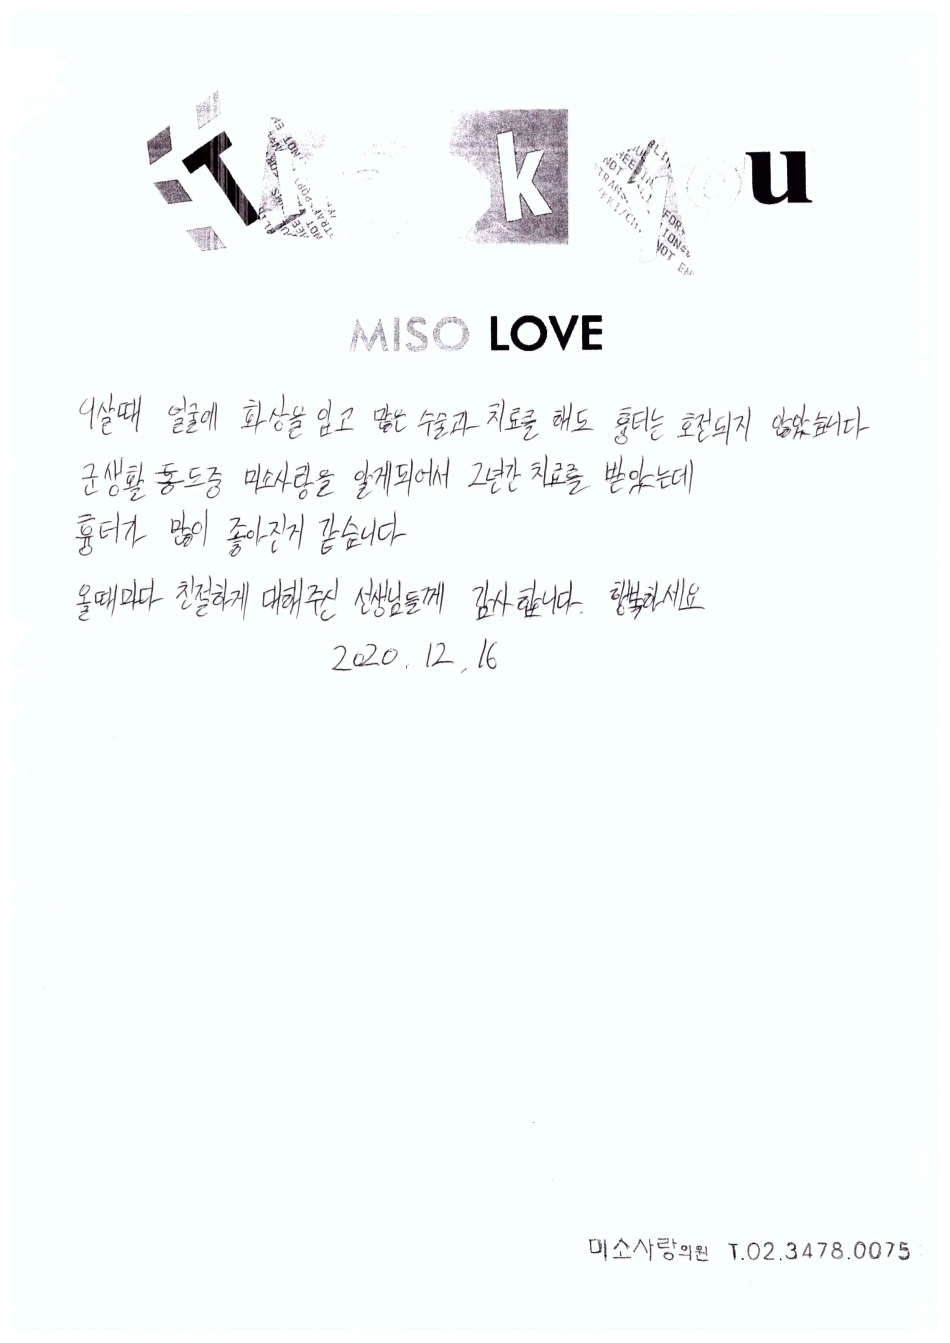 Thank you
MISO LOVE
4살때 얼굴에 화상을 입고 많은 수술과 치료를 해도 흉터는 호전되지 않았습니다
군생활 중 미소사랑을 알게되어서 2년간 치료를 받았는데
흉터가 많이 좋아진거 같습니다
올때마다 친절하게 대해주신 선생님들께 감사합니다. 행복하세요
2020. 12. 16
미소사랑의원 T.02.3478.0075